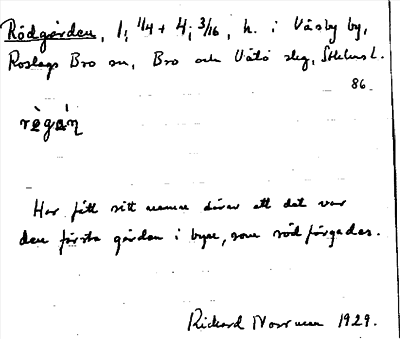 Rödgården, 1, 1/4 + 4, 3/16, h. i Väsby by,
Roslags Bro sn, Bro och Vätö slg, Sthlms l.
86.
rö̀gá̄ṇ
Har fått sitt namn därav att det var
den första gården i byn, som rödfärgades.
Rickard Norrman 1929.